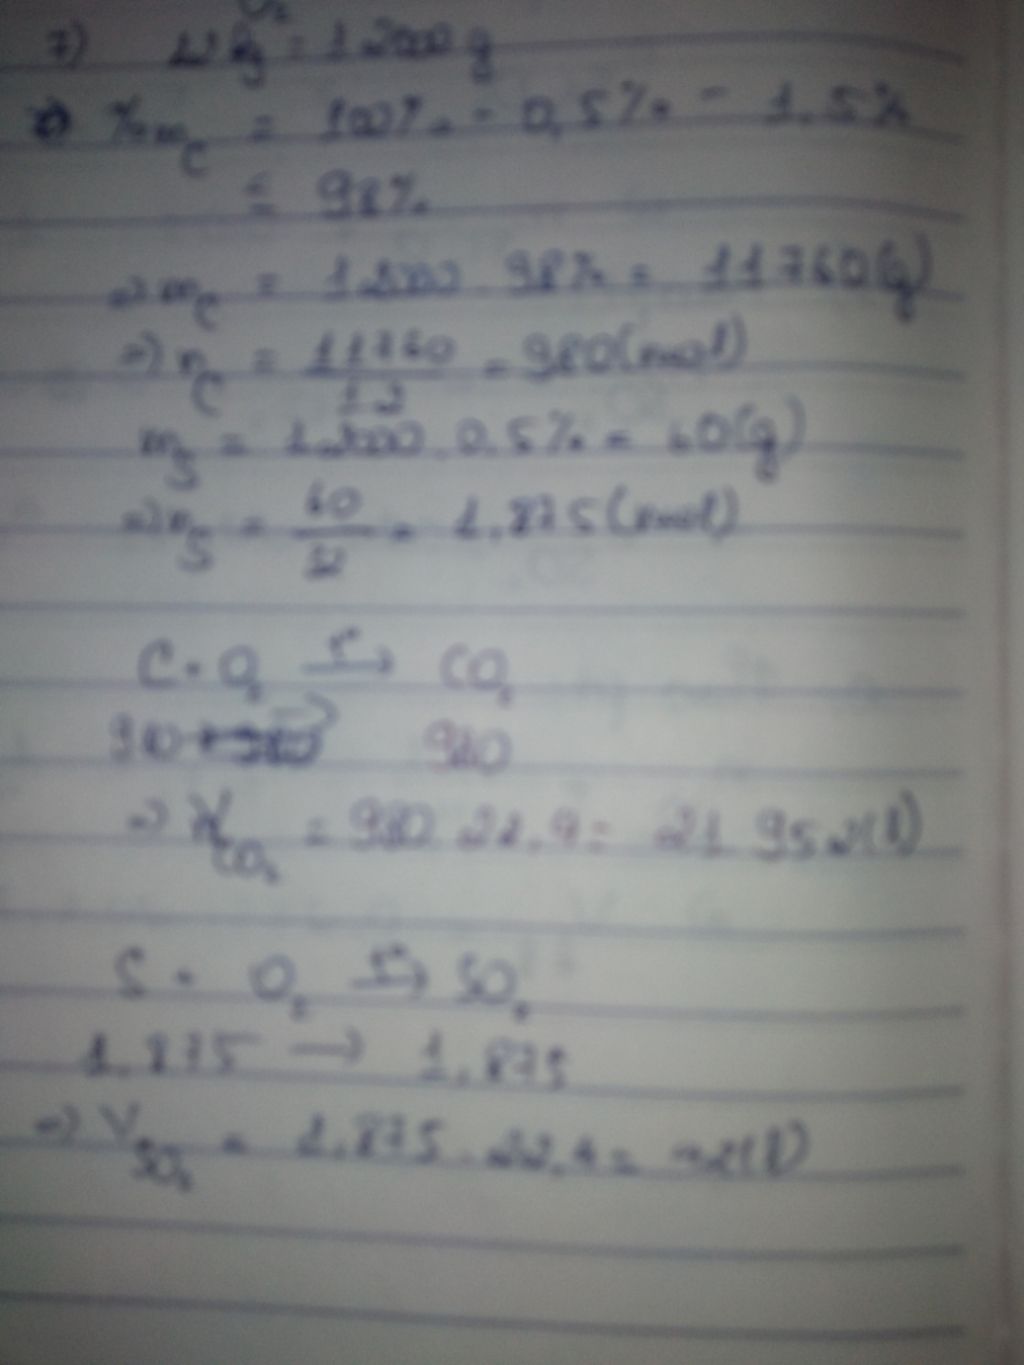 7) 12 kg = 12000 g
% m_C = 100% - 0,5% - 1.5%
= 98%
=> m_C = 12000 . 98% = 11760(g)
=> n_C = 11760/12 = 980(mol)
m_S = 12000 . 0.5% = 60(g)
=> n_S = 60/32 = 1.875(mol)
C + O₂ t°→ CO₂
980 980
=> V_CO₂ = 980 . 22.4 = 21952(l)
S + O₂ t°→ SO₂
1.875 → 1.875
=> V_SO₂ = 1.875 . 22.4 = 42(l)